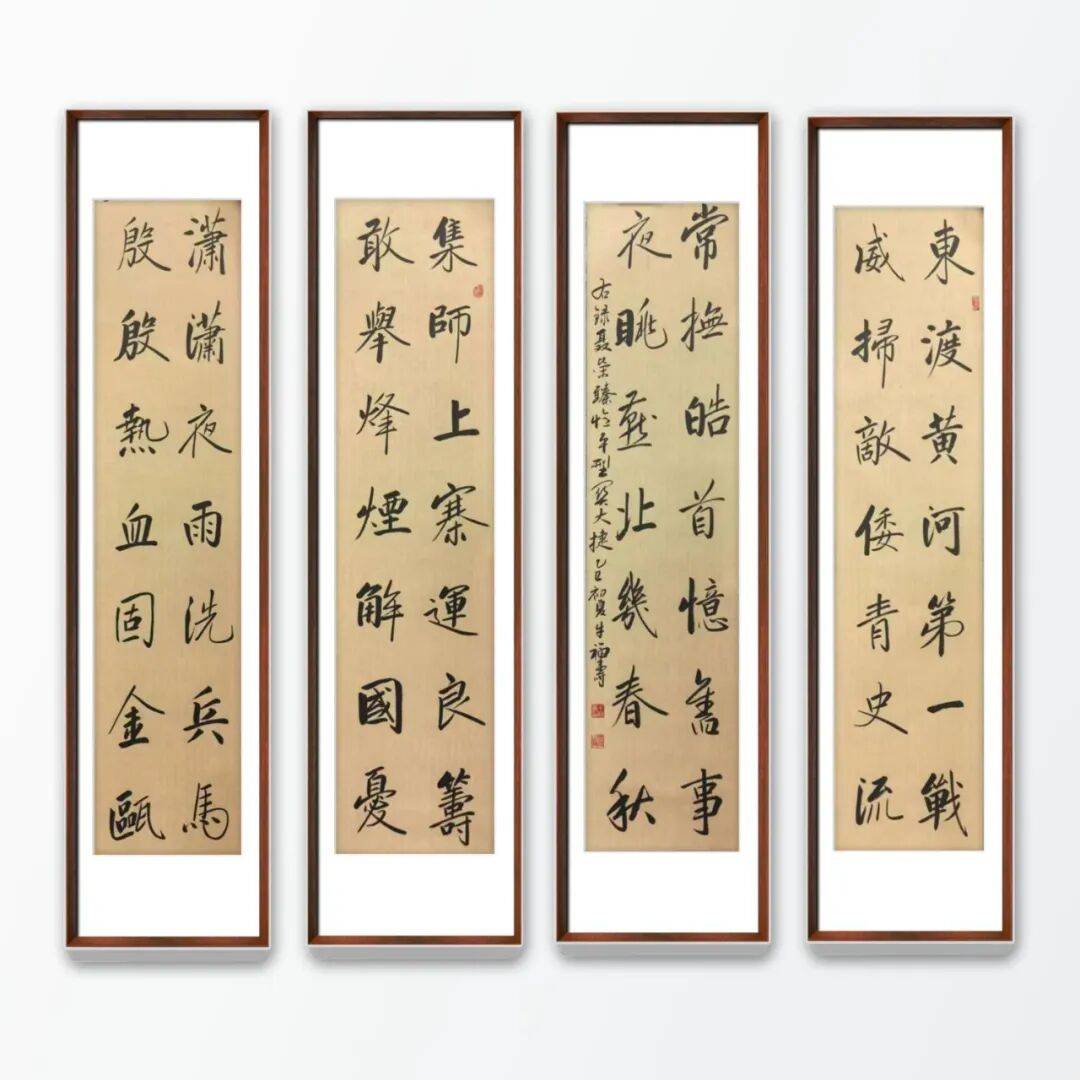 集師上寨運良籌
敢舉烽煙解國憂
瀟瀟夜雨洗兵馬
殷殷熱血固金甌
東渡黄河第一戰
威掃敵倭青史流
常撫皓首憶舊事
夜眺燕北幾春秋
右録聂荣臻忆平型関大捷乙巳初夏牛福壽